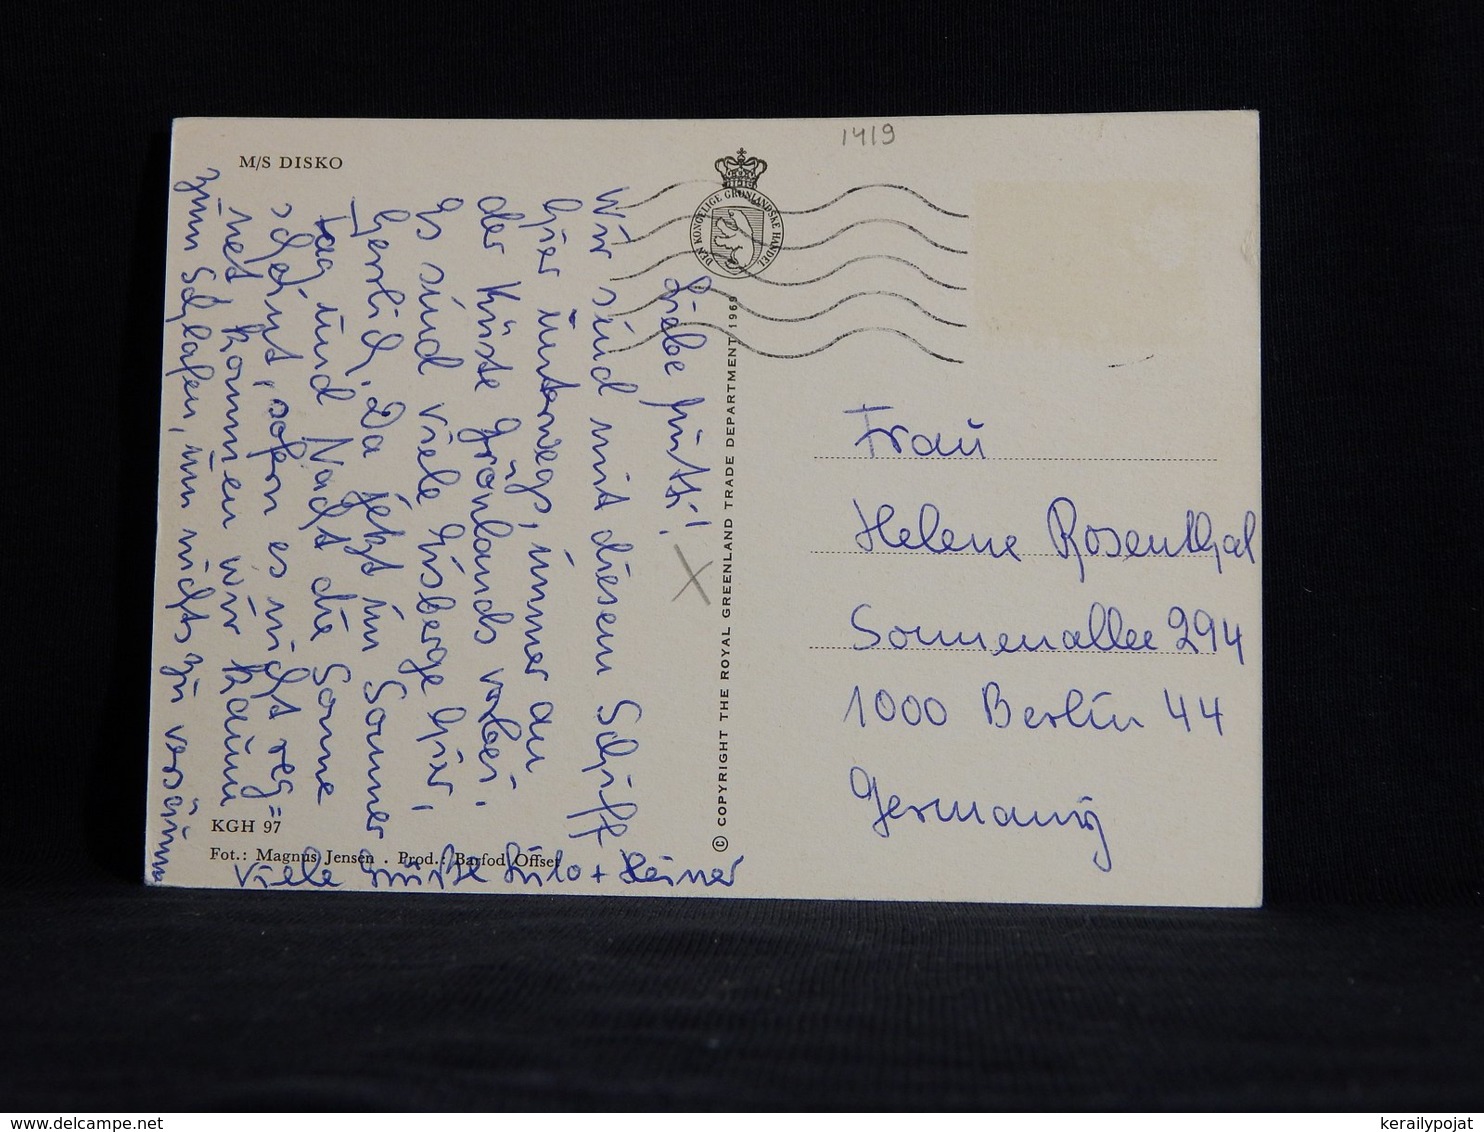 M/S DISKO
1419
DEN KONGELIGE GRØNLANDSKE HANDEL
Liebe Mutti!
Wir sind mit diesem Schiff
hier unterwegs, immer an
der Küste Grönlands vorbei.
Es sind viele Eisberge hier,
herrlich. Da jetzt im Sommer
Tag und Nacht die Sonne
scheint, sofern es nicht reg=
net kommen wir kaum
zum Schlafen, um nichts zu versäumen
Viele Grüße Lilo + Heiner
KGH 97
Fot.: Magnus Jensen . Prod.: Barfod Offset
© COPYRIGHT THE ROYAL GREENLAND TRADE DEPARTMENT 1969
Frau
Helene Rosenthal
Sonnenallee 294
1000 Berlin 44
Germany
kerailypojat